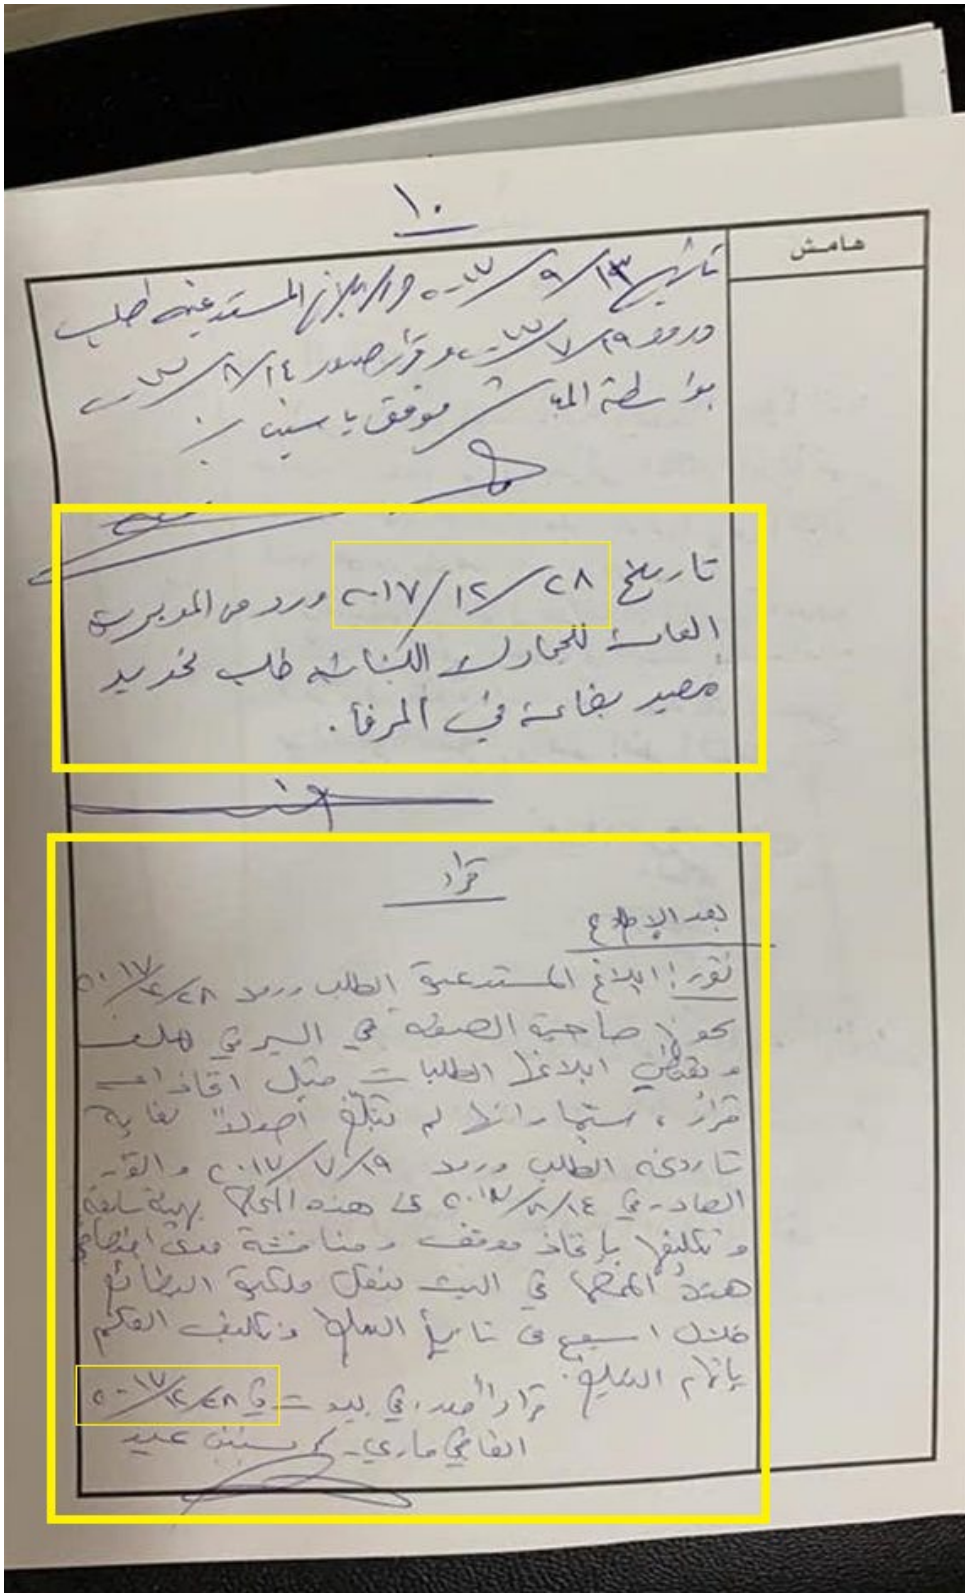 ١٠
هامش
تاريخ ١٣/٩/٢٠١٧ المستدعية طلب
ورود ١٩/٧/٢٠١٧ وقرار صدر ١٤/٨/٢٠١٧
بواسطة المباشر موفق ياسين
تاريخ ٢٨/١٢/٢٠١٧ ورد من المديرية
العامة للجمارك اللبنانية طلب تحديد
مصير بضاعة في المرفأ.
قرار
بعد الإطلاع
نقرر: ابلاغ المستدعية الطلب ورود ٢٨/١٢/٢٠١٧
كونها صاحبة الصفة في السير في الملف
ويقتضي ابلاغها الطلبات قبل اتخاذ اي
قرار، سيما وانها لم تتبلغ أصولاً لغاية
تاريخه الطلب ورود ١٩/٧/٢٠١٧ والقرار
الصادر في ١٤/٨/٢٠١٧ عن هذه المحكمة بهيئة سابقة
وتكليفها بإتخاذ موقف ومناقشة مدى اختصاص
هذه المحكمة في البت بنقل ملكية البضائع
خلال اسبوع من تاريخ التبليغ وتكليف القلم
بإتمام التبليغ.
قراراً صدر في بيروت في ٢٨/١٢/٢٠١٧
القاضي ماري كريستين عيد